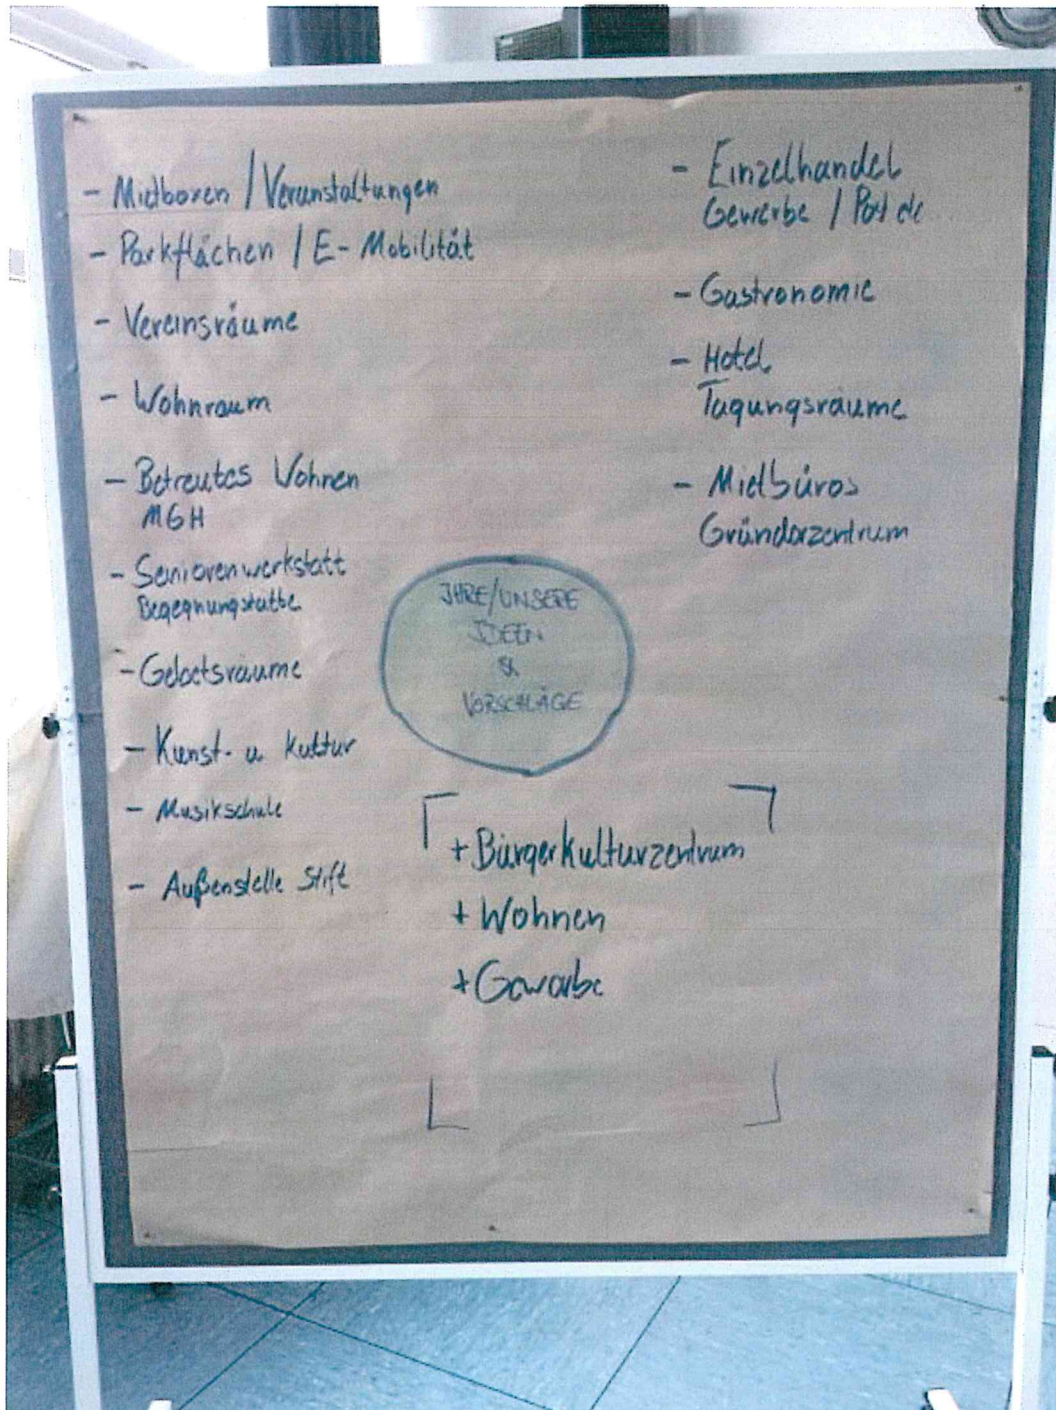 - Mietboxen / Veranstaltungen
- Parkflächen / E-Mobilität
- Vereinsräume
- Wohnraum
- Betreutes Wohnen
MGH
- Seniorenwerkstatt
Begegnungstätte
- Gebetsräume
- Kunst- u Kultur
- Musikschule
- Außenstelle Stift
- Einzelhandel
Gewerbe / Post etc
- Gastronomie
- Hotel
Tagungsräume
- Mietbüros
Gründerzentrum
IHRE/UNSERE
IDEEN
&
VORSCHLÄGE
+ Bürgerkulturzentrum
+ Wohnen
+ Gewerbe